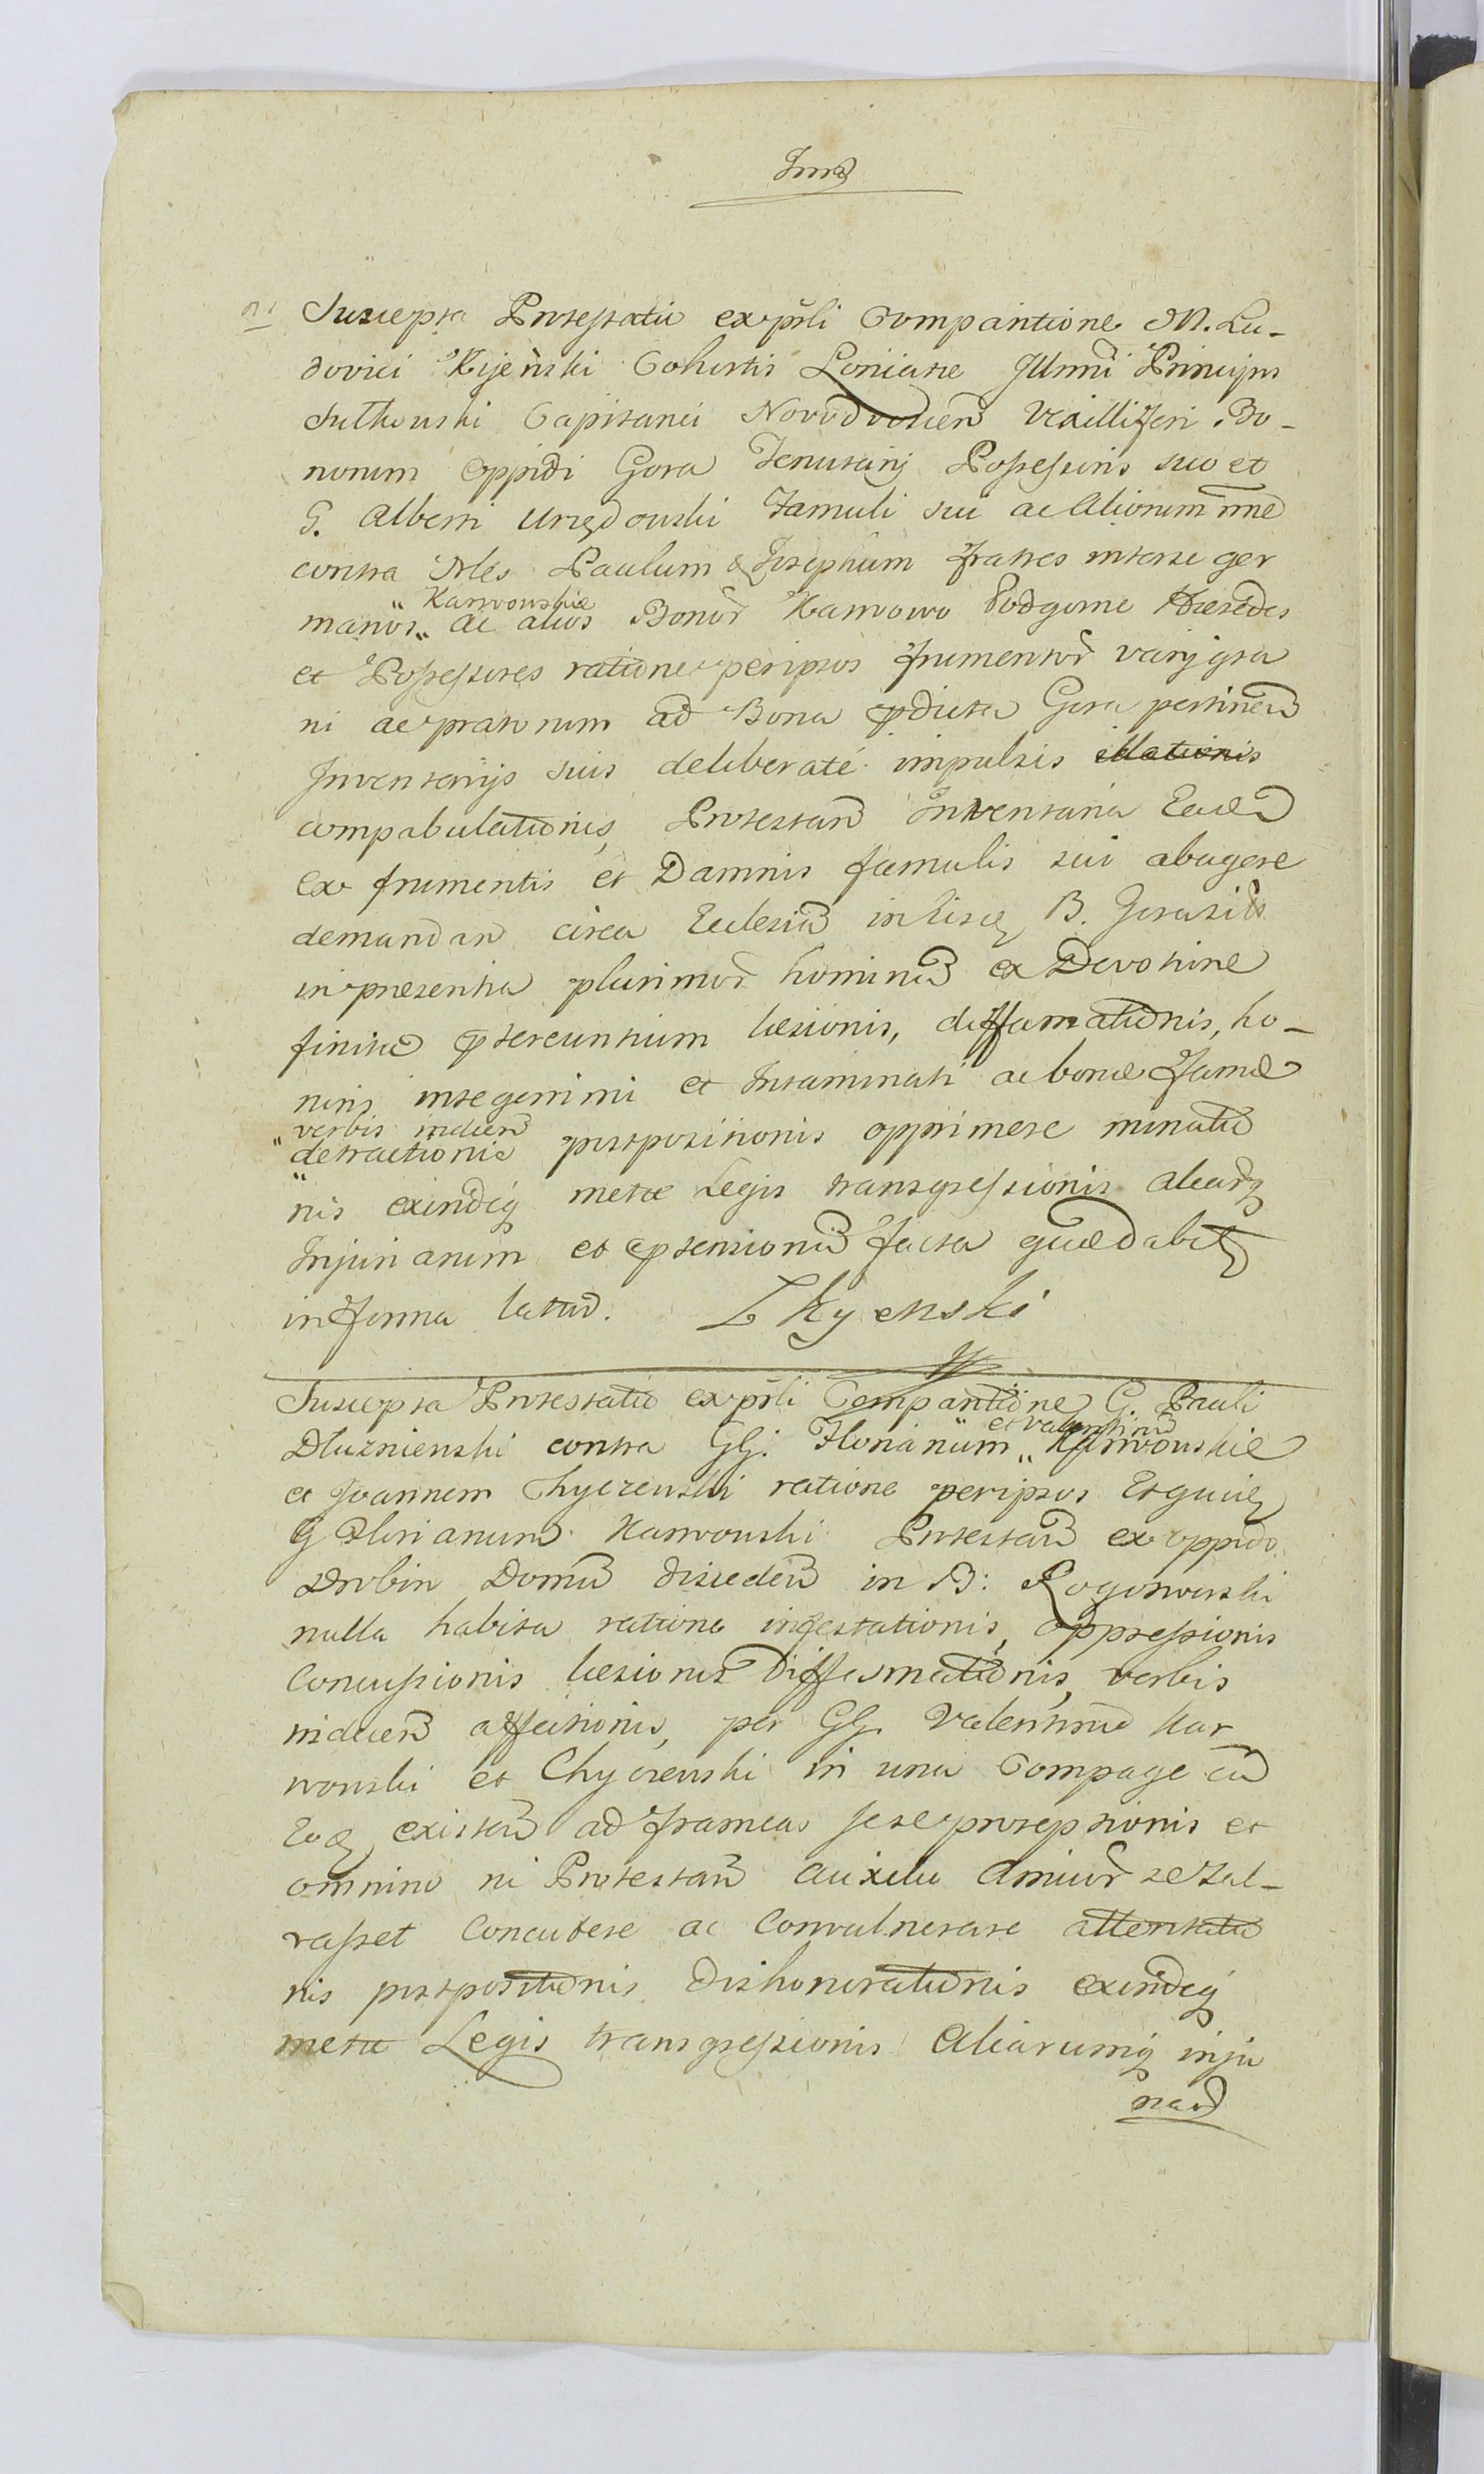 Suscepta Protestatio ex psli Comparitione M. Lu-
dovici Kijeński Cohortis Loricatae Illmi Principis
Sułkowski Capitanei Novodvorien Vexilliferi Bo-
norum Oppidi Gora Tenutarij Possessoris suo et
G. Alberti Urzędowski Famuli sui ac Aliorum nne
contra Nbles Paulum & Josephum Fratres interse ger
Karwowskie
manos „ ac alios Bonor Karwowo Podgorne Haeredes
et Possessores ratione per ipsos frumentor varij gra
ni ac pratorum ad Bona pdicta Gora pertinen
Inventarijs suis deliberaté impulsis illationis
compabulationis, Protestan Inventaria Eadem
ex frumentis et Damnis famulis sui abagere
demandan circa Ecclesia in Eisdem B. Gorazis
in praesentia plurimor hominu ex Devotione
finita ptereuntium laesionis, diffamationis, ho-
noris integerrimi et Intaminati ac bonae Famae
verbis indecen
„ detractionis postpositionis opprimere minatio
nis exindeq metae Legis transgressionis aliarq
Injuriarum et ptensionu facta quae dabitur
in Forma latior. L Kyenski
Suscepta Protestatio ex psli Comparitione G. Pauli
et Valentinu
Dłuznienski contra GG. Florianum „ Karwowskie
et Joannem Chyczewski ratione per ipsos Et quidem
G Florianum Karwowski Protestan ex oppido
Drobin Domu disceden in B: Rogotworski
nulla habita ratione infestationis, oppressionis
Concussionis laesionis Diffamationis, verbis
indecen affectionis, per GG. Valentinu Kar
wowski et Chyczewski in una Compage cu
Eodem existen ad frameas sese proreptionis et
omnino ni Protestan auxilio Amicor se sal-
vasset Concutere ac Convulnerare attentatio
nis postpositionis Dishonorationis exindeq
metae Legis transgressionis Aliarumq inju
riar